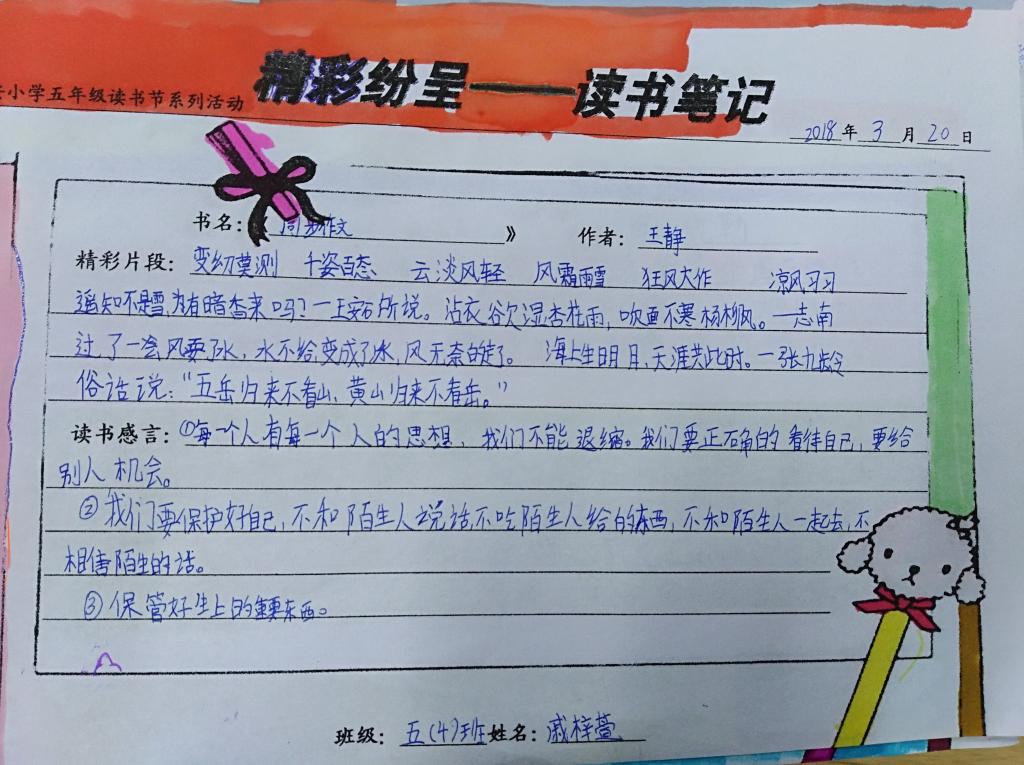 小学五年级读书节系列活动
精彩纷呈——读书笔记
2018年3月20日
书名：同步作文》 作者：王静
精彩片段：变幻莫测 千姿百态 云淡风轻 风霜雨雪 狂风大作 凉风习习
遥知不是雪，为有暗香来吗？一王安石所说。沾衣欲湿杏花雨，吹面不寒杨柳风。—志南
过了一会风要了水，水不给，变成了冰，风无奈的走了。 海上生明月，天涯共此时。一张九龄
俗话说：“五岳归来不看山、黄山归来不看岳。”
读书感言：①每一个人有每一个人的思想，我们不能退缩。我们要正确的看待自己，要给
别人机会。
②我们要保护好自己，不和陌生人说话，不吃陌生人给的东西，不和陌生人一起去，不
相信陌生的话。
③保管好生上的重要东西。
班级：五（4）班 姓名：戚梓萱